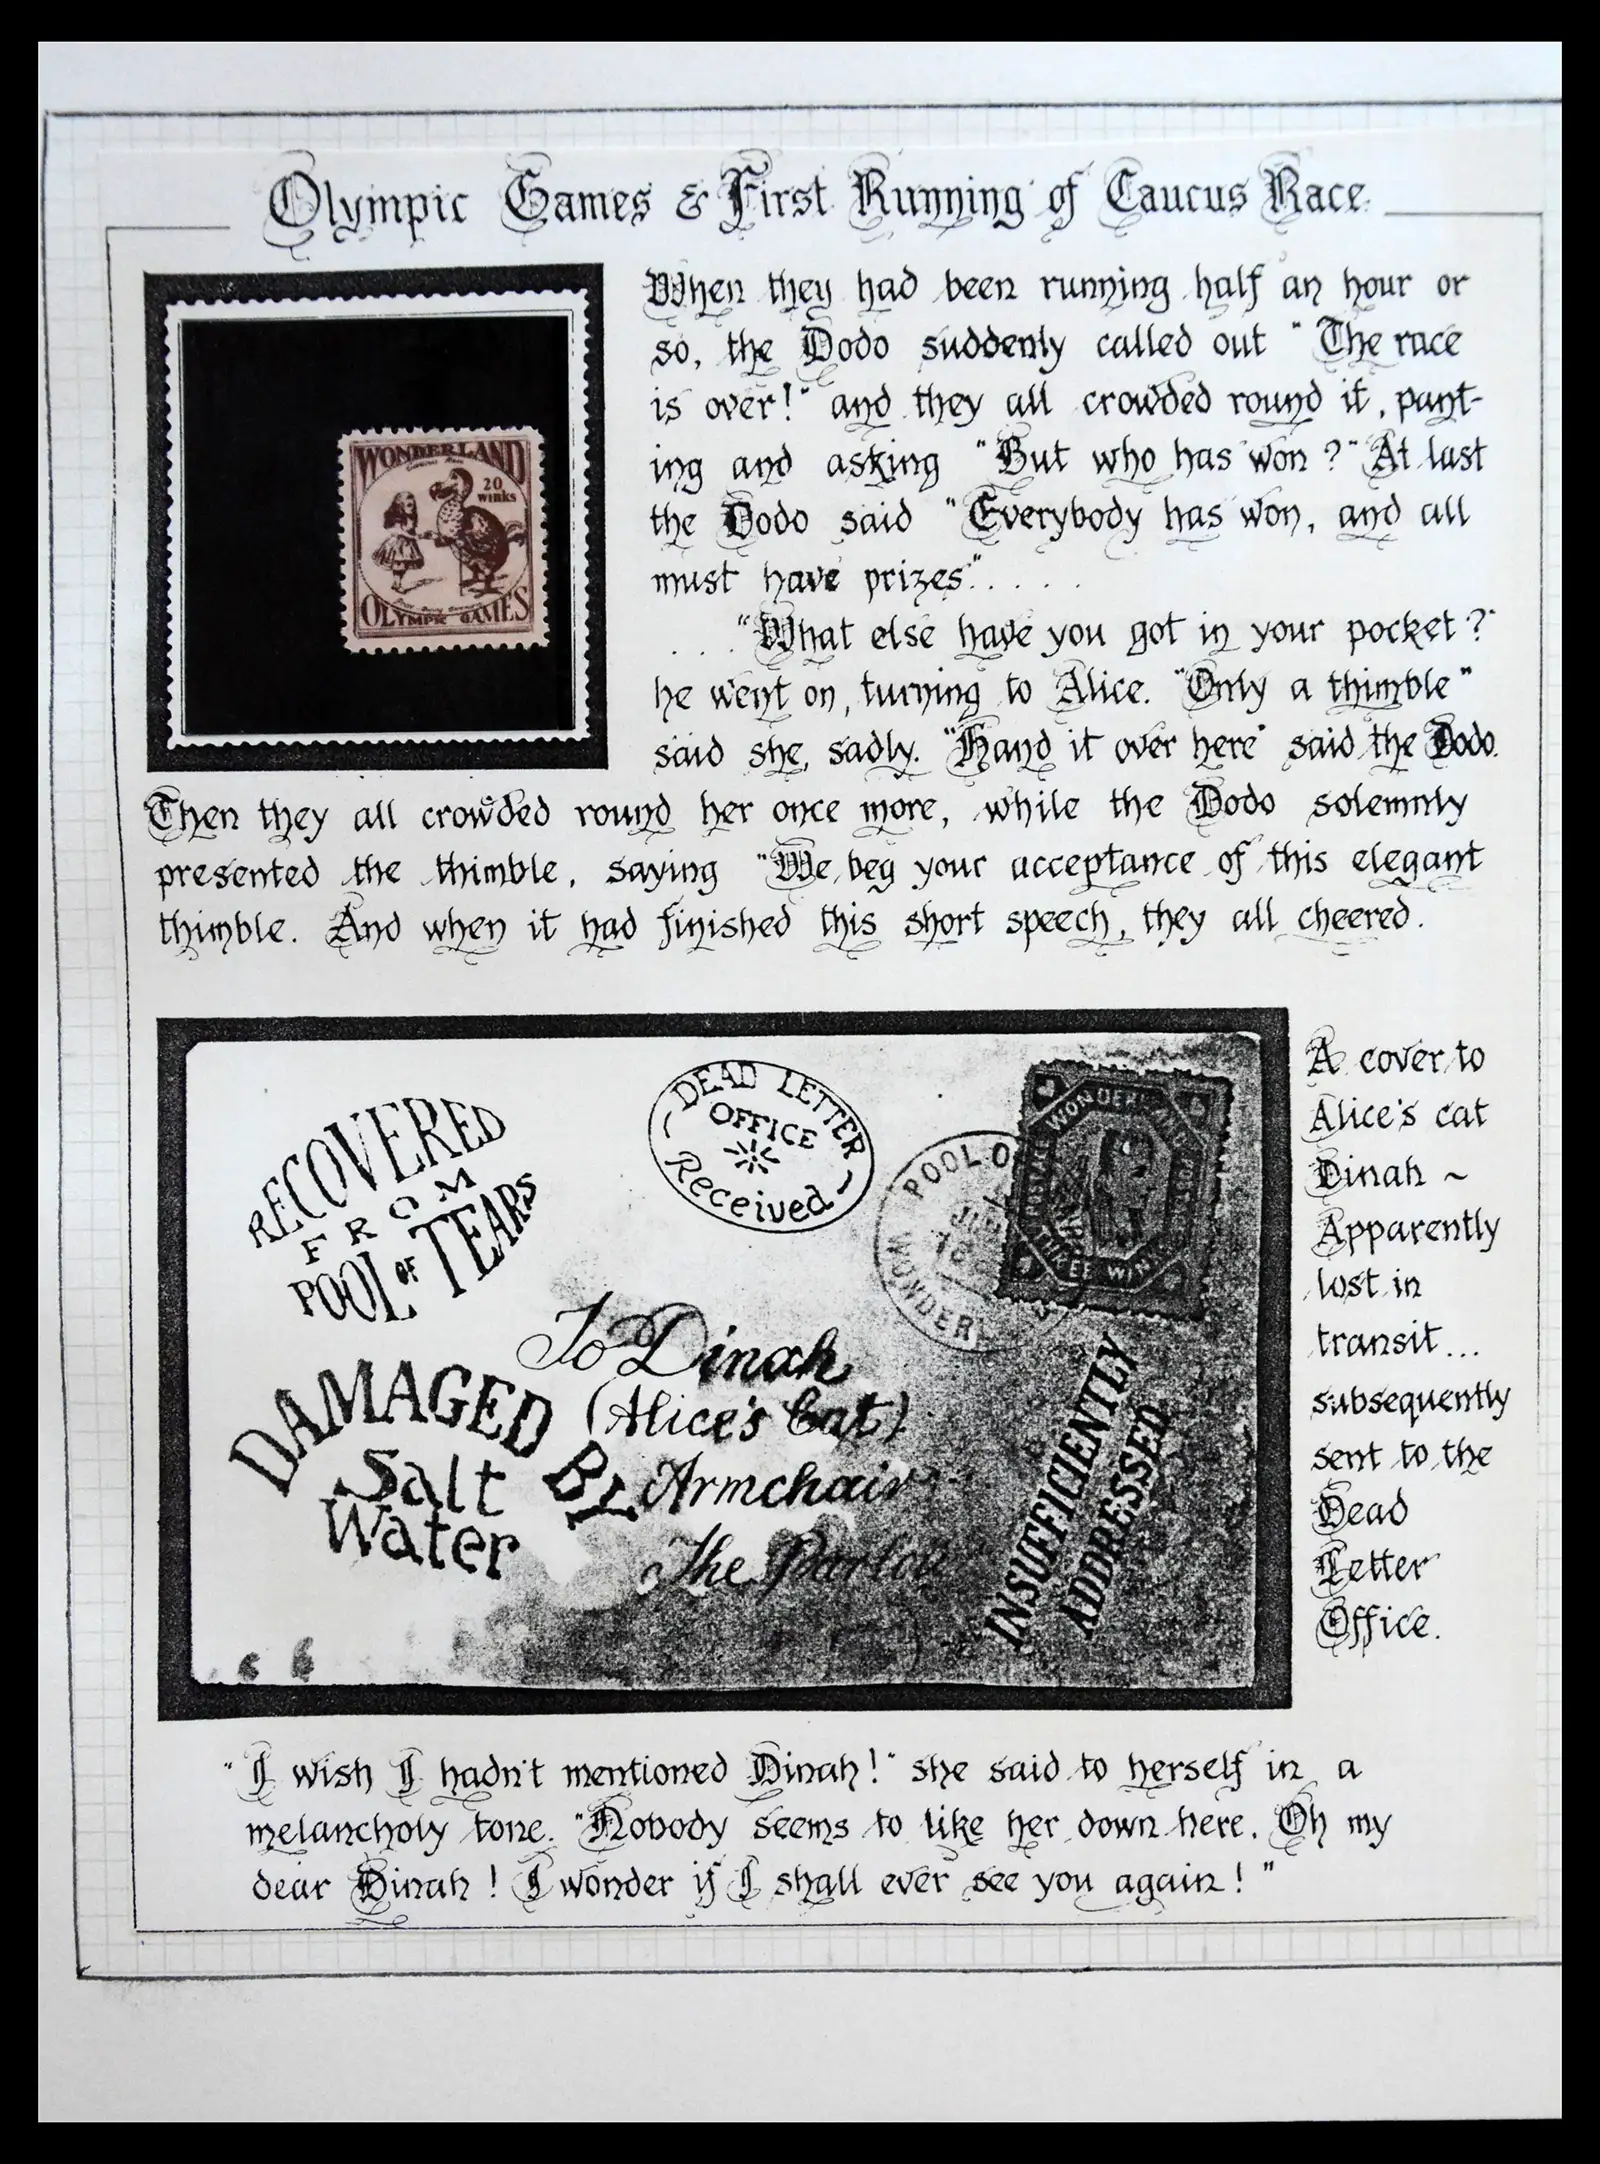 Olympic Games & First Running of Caucus Race
When they had been running half an hour or
so, the Dodo suddenly called out "The race
is over!" and they all crowded round it, pant-
ing and asking "But who has won?" At last
the Dodo said "Everybody has won, and all
must have prizes".....
...."What else have you got in your pocket?"
he went on, turning to Alice. "Only a thimble"
said she, sadly. "Hand it over here" said the Dodo.
Then they all crowded round her once more, while the Dodo solemnly
presented the thimble, saying "We beg your acceptance of this elegant
thimble. And when it had finished this short speech, they all cheered.
WONDERLAND
20
winks
OLYMPIC GAMES
RECOVERED
FROM
POOL OF TEARS
DEAD LETTER
OFFICE
Received
POOL O
WONDER
DAMAGED BY
Salt
Water
To Dinah
(Alice's Cat)
Armchair
The Parlou
INSUFFICIENTLY
ADDRESSED
A cover to
Alice's cat
Dinah ~
Apparently
lost in
transit...
subsequently
sent to the
Dead
Letter
Office.
"I wish I hadn't mentioned Dinah!" she said to herself in a
melancholy tone. "Nobody seems to like her down here. Oh my
dear Dinah! I wonder if I shall ever see you again!"